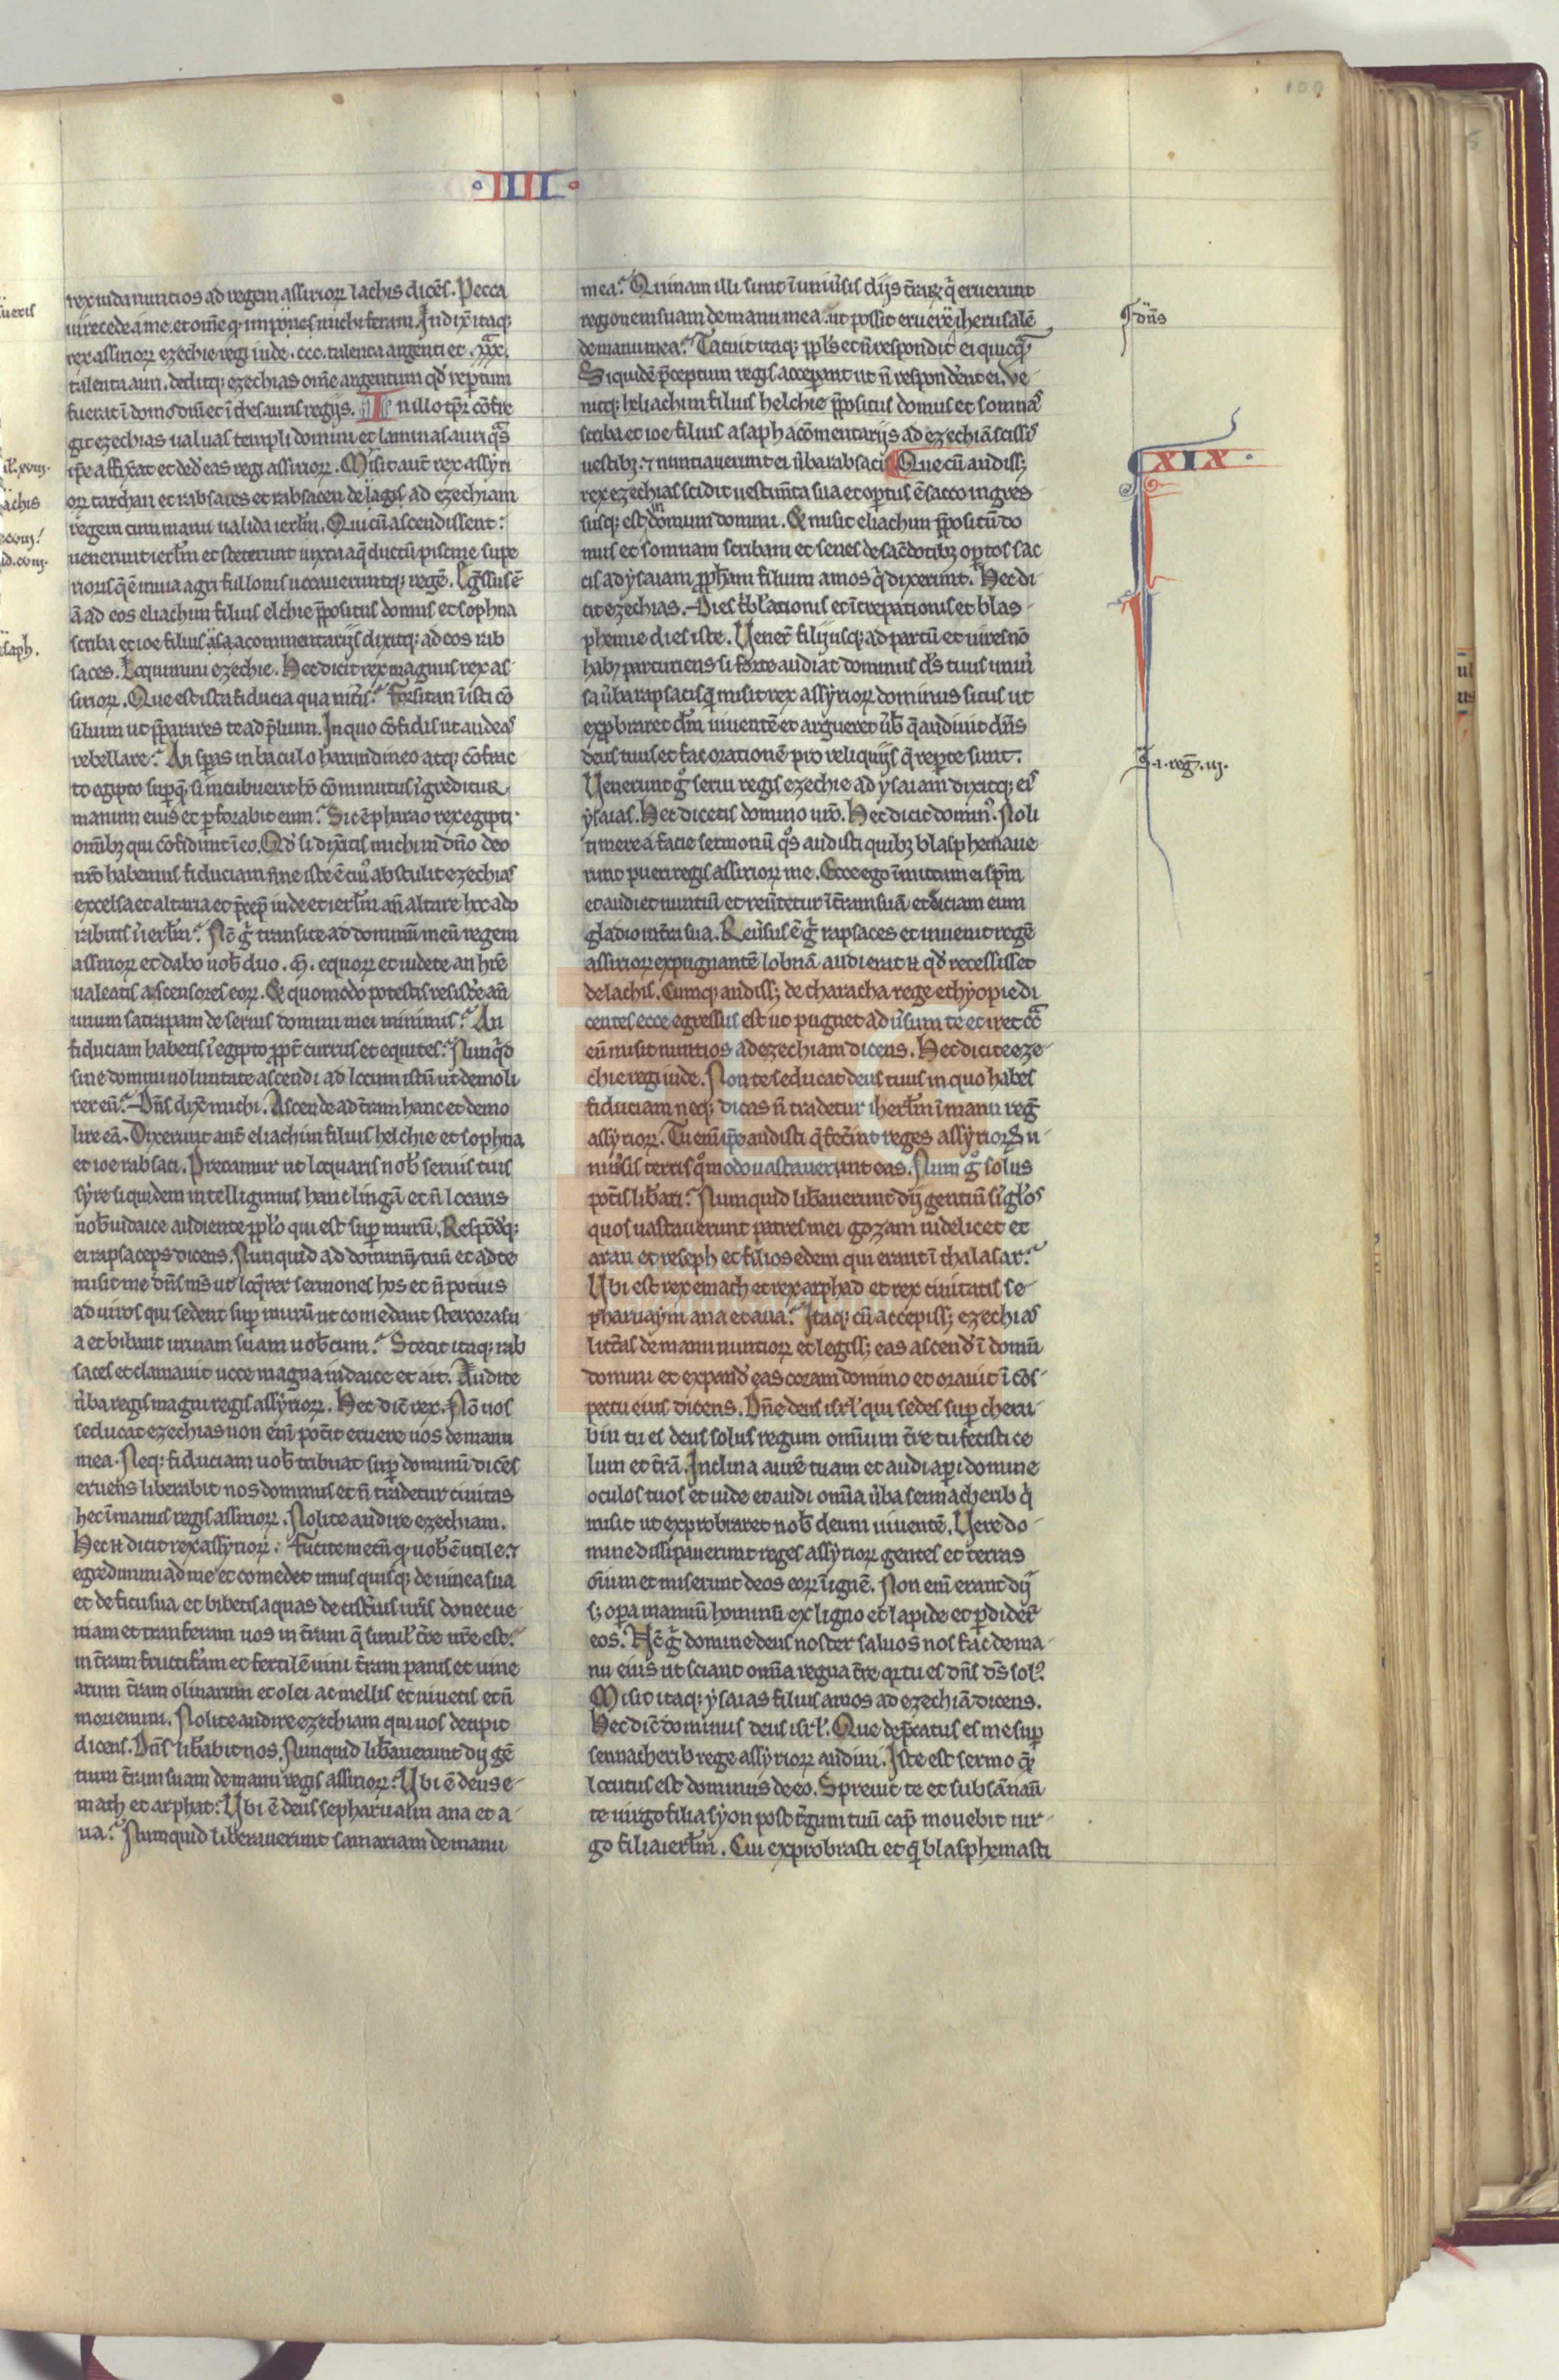 ·IIII·
rex iuda nuncios ad regem assirioꝝ lachis dicēs. Pecca
ui recede a me. et om̄e qͥ imposueris michi feram. Indix̄ itaqꝫ
rex assirioꝝ ezechie regi iude .ccc. talenta argenti et .xxx.
talenta auri. deditqꝫ ezechias om̄e argentum qd̄ rep̄tum
fuerat ī domo dn̄i et ī thesauris regijs. In illo tp̄r cōfre
git ezechias ualuas templi domini et laminas auri qͣs
ip̄e affix̄at et ded̄ eas regi assirioꝝ. Misit aut̄ rex assyri
oꝝ tarthan et rabsares et rabsacen de lagis ad ezechiam
regem cum manu ualida ierl̄m. Qui cū ascendissent:
uenerunt ierl̄m et steterunt iuxta aq̄ductū piscine supe
rioris q̄ ē in uia agri fullonis uocaueruntqꝫ regē. Egssus ē
ā ad eos eliachim filius elchie p̄positus domus et sophna
scriba et ioe filius asaa a commentarijs dixitqꝫ ad eos rab
saces. Loquimini ezechie. Hec dicit rex magnus rex as
sirioꝝ. Que est ista fiducia qua niteris? Forsitan īisti cō
silium ut p̄parares te ad p̄lium. In quo cōfidis ut audeas
rebellare? An sp̄as in baculo harundineo atqꝫ cōfrac
to egipto sup̄ qͣ si incubuerit hō cōminutus īgreditur
manum eius et p̄forabit eum? Sic ē pharao rex egipti
om̄ibꝫ qui cōfidunt ī eo. Qd̄ si dix̄itis michi in dn̄o deo
nr̄o habemus fiduciam nn̄e iste ē cuiꝰ abstulit ezechias
excelsa et altaria et p̄cep̄ iude et ierl̄m an̄ altare hoc ado
rabitis ī ierl̄m? Nc̄ gͥ transite ad dominū meū regem
assirioꝝ et dabo uob̄ duo .M. equoꝝ et uidete an hr̄e
ualeatis ascensores eoꝝ. Et quomodo potestis resist̄e an̄
unum satrapam de seruis domini mei minimis? An
fiduciam habetis ī egipto pp̄t currus et equites? Nunqͥd
sine domini uoluntate ascendi ad locum istū ut demoli
rer eū? Dn̄s dix̄ michi. Ascende ad t̄ram hanc et demo
lire eā. Dixerunt aut̄ eliachim filius helchie et sophna
et ioe rabsaci. Precamur ut loquaris nob̄ seruis tuis
syre siquidem intelligimus hanc lingā et n̄ locaris
nob̄ iudaice audiente pp̄lo qui est sup̄ murū. Respōd̄qꝫ
ei rapsaceps dicens. Nunquid ad dominū tuū et ad te
misit me dn̄s ms̄ ut loq̄rer sermones hos et n̄ potius
ad uiros qui sedent sup̄ murū ut comedant stercora su
a et bibant urinam suam uob̄cum? Stetit itaqꝫ rab
saces et clamauit uoce magna iudaice et ait. Audite
ūba regis magni regis assyrioꝝ. Hec dic̄ rex. Nō uos
seducat ezechias non em̄ pot̄it eruere uos de manu
mea. Neqꝫ fiduciam uob̄ tribuat sup̄ dominū dicēs
eruens liberabit nos dominus et n̄ tradetur ciuitas
hec ī manus regis assirioꝝ. Nolite audire ezechiam.
Hec n̄ dicit rex assyrioꝝ. Facite mecū qͥ uob̄ ē utile ⁊
egredimini ad me et comedet unus quisqꝫ de uinea sua
et de ficu sua et bibetis aquas de cist̄nis uris donec ue
niam et tranferam uos in t̄ram q̄ simil̄ t̄re ur̄e est.
in t̄ram fructifam et fertilē uini t̄ram panis et uine
arum t̄ram oliuarum et olei ac mellis et uiuetis et n̄
moriemini. Nolite audire ezechiam qui uos decipit
dicens. Dn̄s lib̄abit nos. Nunquid lib̄auerunt dij gē
tium t̄ram suam de manu regis assirioꝝ? Ubi ē deus e
math et arphat? Ubi ē deus sepharuaim ana et a
ua? Numquid liberauerunt samariam de manu
mea? Quinam illi sunt ī uniūsis dijs t̄raꝝ qͥ eruerunt
regionem suam de manu mea ut possit eruere iherusalē
de manu mea? Tacuit itaqꝫ pp̄ls et n̄ respondit ei quicqͣ
Siquidē p̄ceptum regis acceperant ut n̄ respond̄ent ei. Ve
nitqꝫ heliachim filius helchie p̄positus domus et somnas
scriba et ioe filius asaph a cōmentarijs ad ezechiā scissis
uestibꝫ. ⁊ nuntiauerunt ei ūba rabsacis Que cū audissꝫ
rex ezechias scidit uestim̄ta sua et op̄tus ē sacco ingres
susqꝫ est in domum domini. Et misit eliachim p̄positū do
mus et somnam scribam et senes de sac̄dotibꝫ op̄tos sac
cis ad ysaiam pp̄ham filium amos qͥ dixerunt. Hec di
cit ezechias. Dies tͥb̄lationis et īcrepationis et blas
phemie dies iste. Uener̄ filij usqꝫ ad partū et uires nō
habꝫ parturiens si forte audiat dominus ds̄ tuus uniū
sa ūba rapsacis qͣ misit rex assyrioꝝ dominus suus ut
exp̄braret dm̄ uiuentē et argueret ūb̄ q̄ audiuit dn̄s
deus tuus et fac orationē pro reliquijs q̄ rep̄te sunt.
Uenerunt gͦ serui regis ezechie ad ysaiam dixitqꝫ eis
ysaias. Hec dicetis domino uro. Hec dicit dominꝰ. Noli
timere a facie sermonū qͦs audisti quibꝫ blasphemaue
runt pueri regis assirioꝝ me. Ecce ego īmittam ei sp̄m
et audiet nuntiū et reūtetur ī t̄ram suā et diciam eum
gladio in t̄ra sua. Reūsus ē gͥ rapsaces et inuenit regē
assirioꝝ expugnantē lobnā audierat n̄ qd̄ recessisset
de lachis. Cumqꝫ audissꝫ de tharacha rege ethyopie di
centes ecce egressus est ut pugnet ad ūsum te et iret cōͣ
eū misit nuntios ad ezechiam dicens. Hec dicite eze
chie regi iude. Non te seducat deus tuus in quo habes
fiduciam neqꝫ dicas n̄ tradetur iherl̄m ī manu reḡ
assyrioꝝ. Tu em̄ ip̄e audisti q̄ fec̄int reges assyrioꝝ u
niūsis terris qͦmodo uastauerunt eas. Num gͦ solus
pot̄is lib̄ari? Numquid lib̄auerunt dij gentiū sīgl̄os
quos uastauerunt patres mei gozam uidelicet et
aran et reseph et filios edem qui erant ī thalasar?
Ubi est rex emath et rex arphad et rex ciuitatis se
pharuaym ana et aua? Itaqꝫ cū accepissꝫ ezechias
litt̄as de manu nuntioꝝ et legissꝫ eas ascend̄ ī domū
domini et expand̄ eas coram domino et orauit ī cōs
pectu eius dicens. Dn̄e deus isrl̄ qui sedes sup̄ cheru
bin tu es deus solus regum omnium t̄re tu fecisti ce
lum et t̄rā. Inclina aurē tuam et audi ap̄i domine
oculos tuos et uide et audi om̄ia ūba sennacherib qͥ
misit ut exprobraret nob̄ deum uiuentē. Uere do
mine dissipauerunt reges assyrioꝝ gentes et terras
oīum et miserunt deos eoꝝ ī ignē. Non em̄ erant dij
sꝫ op̄a manuū hominū ex ligno et lapide et p̄dider̄t
eos. Nc̄ gͥ domine deus noster saluos nos fac de ma
nu eius ut sciant om̄ia regna t̄re qr tu es dn̄s ds̄ solꝰ
Misit itaqꝫ ysaias filius amos ad ezechiā dicens.
Hec dic̄ dominus deus isrl̄. Que dep̄catus es me sup̄
sennacherib rege assyrioꝝ audiui. Iste est sermo qͣꝫ
locutus est dominus de eo. Spreuit te et subsānau̅
te uirgo filia syon post t̄gum tuū cap̄ mouebit uir
go filia ierl̄m. Cui exprobrasti et qͣ blasphemasti
dn̄s
XIX.
a. reḡ. iij.
achis
saph.